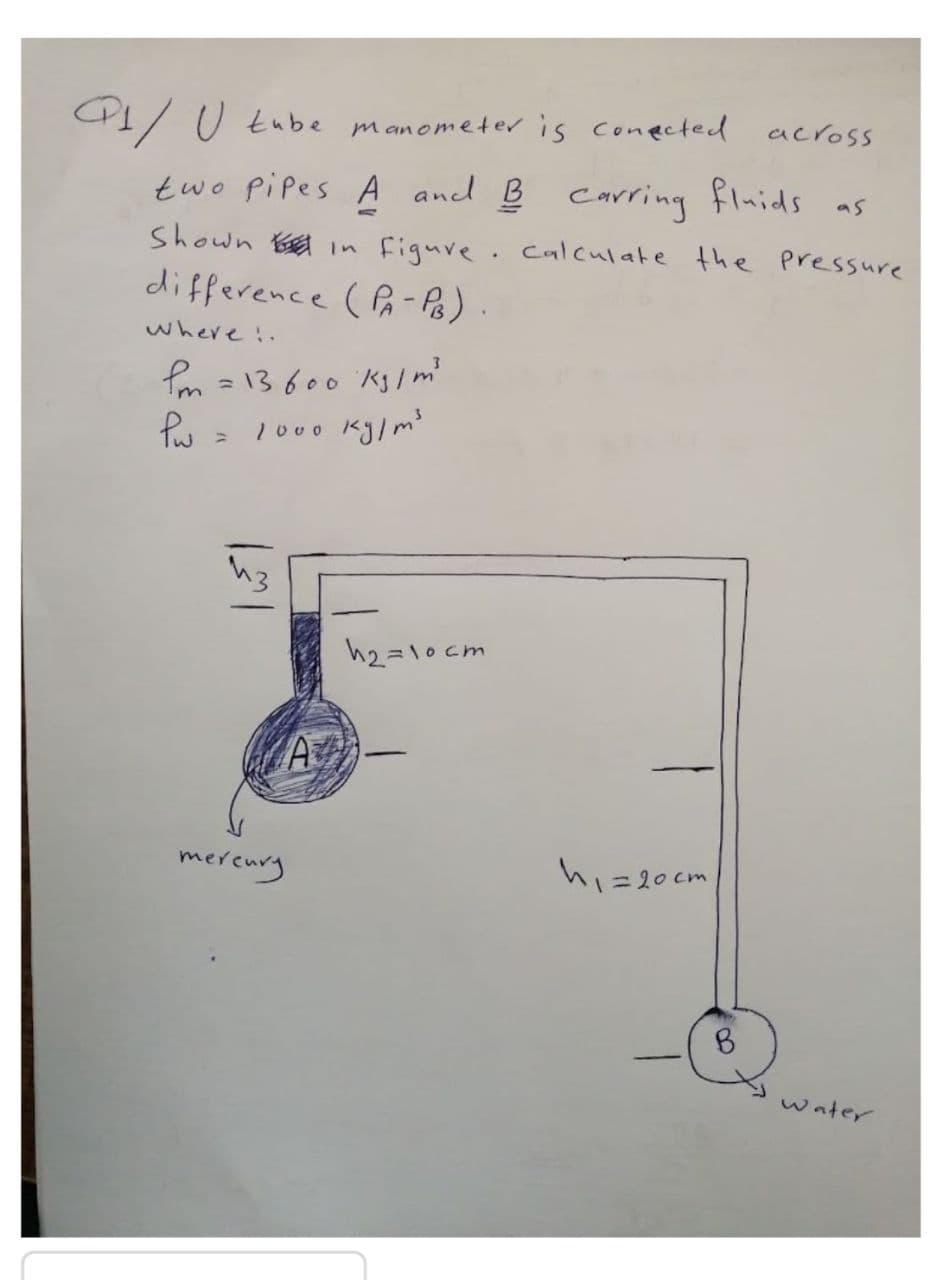 Q1/ U tube manometer is conected across
two pipes A and B carring fluids as
shown in figure. calculate the pressure
difference (PA-PB).
where:.
ρm = 13600 Kg/m³
ρw = 1000 Kg/m³
h3
h2=10cm
A
mercury
h1=20cm
B
water